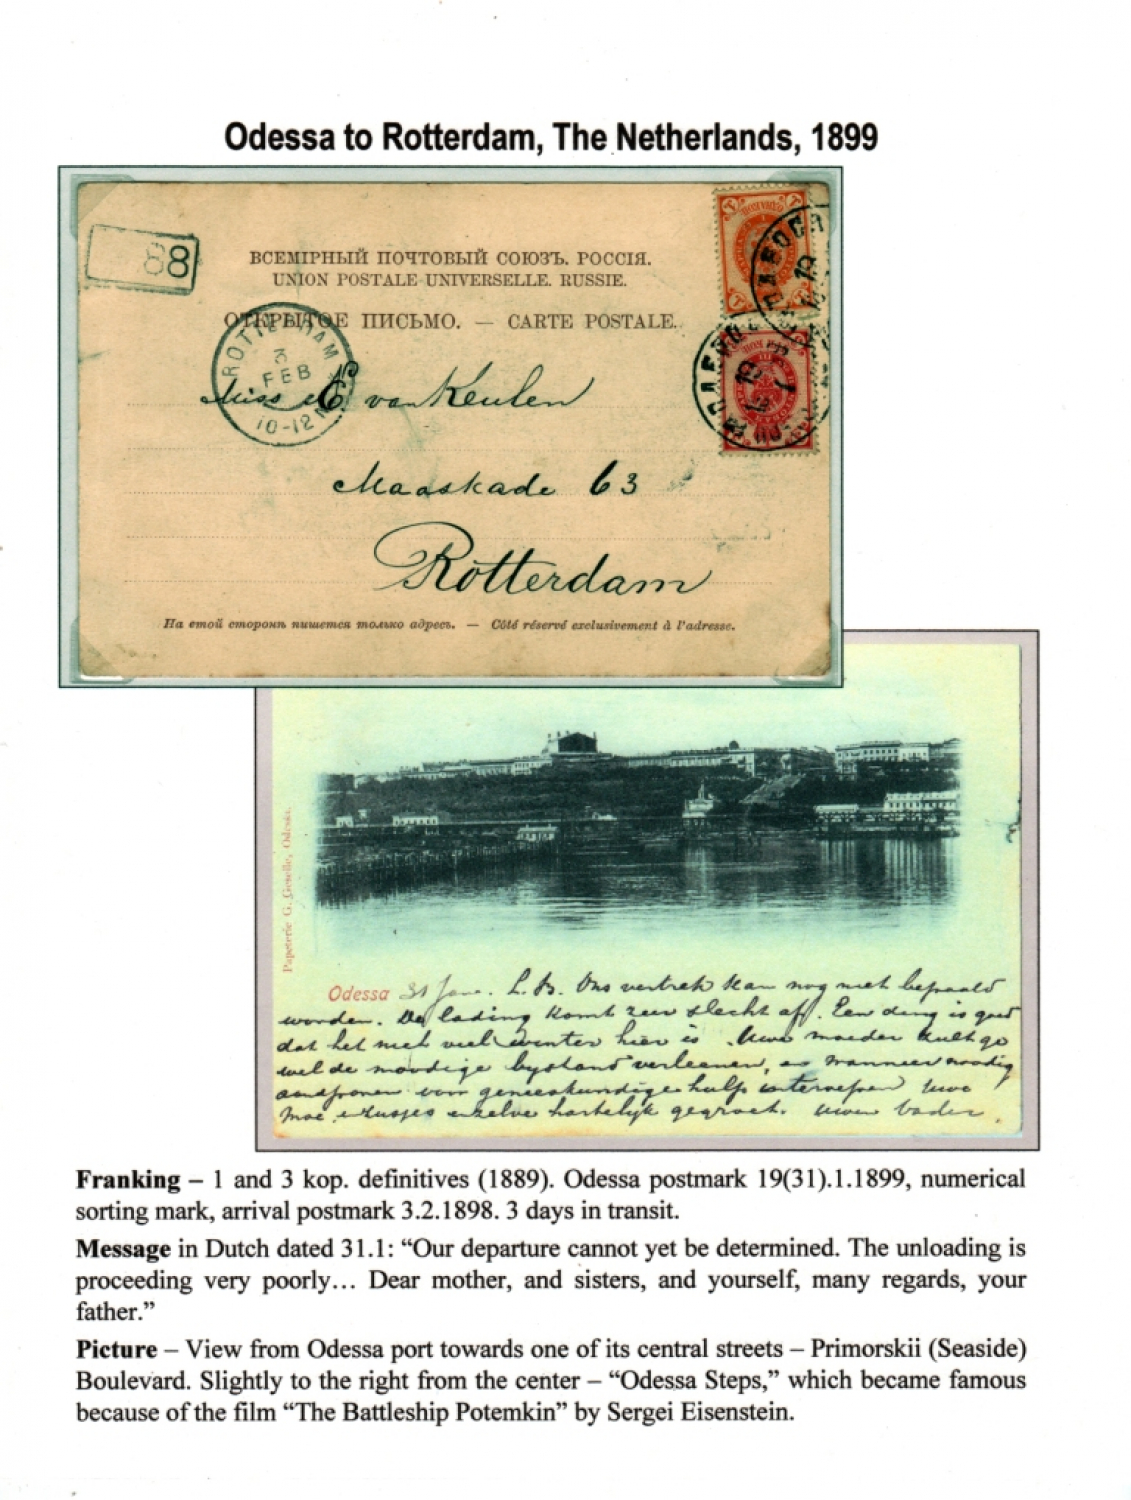 Odessa to Rotterdam, The Netherlands, 1899
88
ВСЕМІРНЫЙ ПОЧТОВЫЙ СОЮЗЪ. РОССІЯ.
UNION POSTALE UNIVERSELLE. RUSSIE.
ОТКРЫТОЕ ПИСЬМО. — CARTE POSTALE.
ROTTERDAM
3
FEB
10-12
Miss van Keulen
Maaskade 63
Rotterdam
На етой сторонѣ пишется только адресъ. — Côté réservé exclusivement à l'adresse.
Papeterie G. Geselle, Odessa.
Odessa 31 Jan. L.B. Ons vertrek kan nog niet bepaald
worden. De lading komt zeer slecht af. Een ding is goed
dat het niet veel winter hier is. Uwe moeder zult ge
wel de noodige bystand verleenen, en wanneer noodig
voor geneeskundige hulp Uwe
Moe zusjes enzelve hartelyk gegroet. Uwen vader.
Franking – 1 and 3 kop. definitives (1889). Odessa postmark 19(31).1.1899, numerical
sorting mark, arrival postmark 3.2.1898. 3 days in transit.
Message in Dutch dated 31.1: “Our departure cannot yet be determined. The unloading is
proceeding very poorly… Dear mother, and sisters, and yourself, many regards, your
father.”
Picture – View from Odessa port towards one of its central streets – Primorskii (Seaside)
Boulevard. Slightly to the right from the center – “Odessa Steps,” which became famous
because of the film “The Battleship Potemkin” by Sergei Eisenstein.